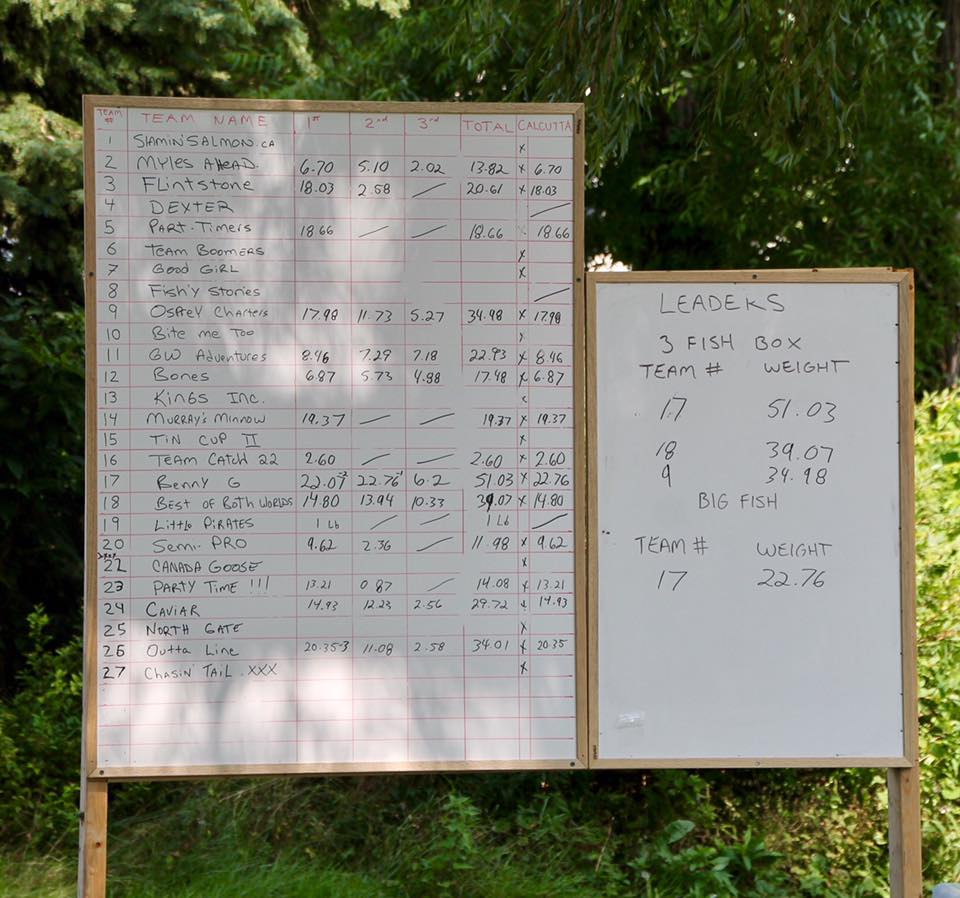 TEAM # TEAM NAME 1st 2nd 3rd TOTAL CALCUTTA
1 SLAMIN'SALMON.CA x
2 MYLES AHEAD. 6.70 5.10 2.02 13.82 x 6.70
3 FLINTSTONE 18.03 2.58 / 20.61 x 18.03
4 DEXTER /
5 PART-TIMERS 18.66 / / 18.66 x 18.66
6 TEAM BOOMERS x
7 GOOD GIRL x
8 FISH'Y STORIES /
9 OSPREY CHARTERS 17.98 11.73 5.27 34.98 x 17.98
10 Bite me Too x
11 GW Adventures 8.46 7.29 7.18 22.93 x 8.46
12 Bones 6.87 5.73 4.88 17.48 x 6.87
13 KINGS INC.
14 MURRAY'S MINNOW 19.37 / / 19.37 x 19.37
15 TIN CUP II x
16 TEAM CATCH 22 2.60 / / 2.60 x 2.60
17 Benny G 22.07-2 22.76-1 6.2 51.03 x 22.76
18 BEST OF BOTH WORLDS 14.80 13.94 10.33 39.07 x 14.80
19 LITTLE PIRATES 1 Lb / / 1 Lb /
20 SEMI-PRO 9.62 2.36 / 11.98 x 9.62
22 CANADA GOOSE x
23 PARTY TIME !!! 13.21 0.87 / 14.08 x 13.21
24 CAVIAR 14.93 12.23 2.56 29.72 x 14.93
25 NORTH GATE x
26 Outta Line 20.35-3 11.08 2.58 34.01 x 20.35
27 CHASIN' TAIL.XXX x
LEADERS
3 FISH BOX
TEAM # WEIGHT
17 51.03
18 39.07
9 34.98
BIG FISH
TEAM # WEIGHT
17 22.76